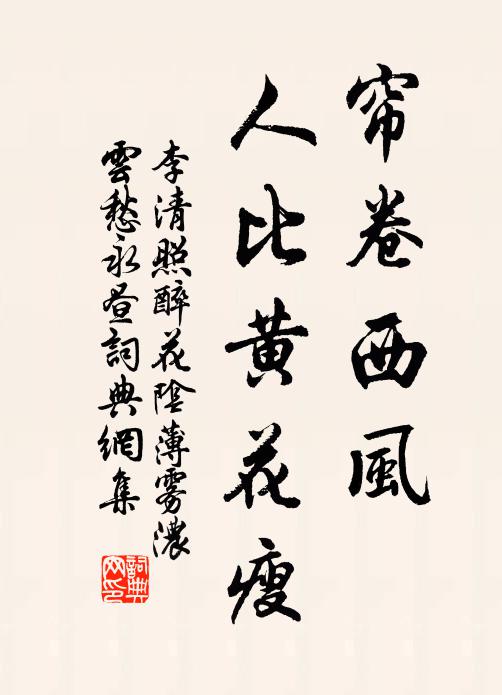 帘卷西風
人比黄花瘦
李清照醉花陰薄霧濃
雲愁永昼詞典網集
詞典网印